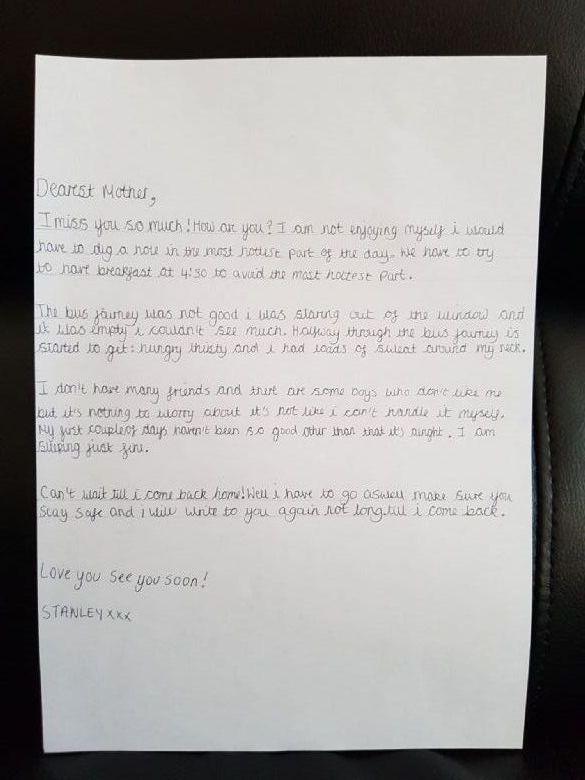 Dearest Mother,
I miss you so much! How are you? I am not enjoying myself i would
have to dig a hole in the most hottest part of the day. We have to try
to have breakfast at 4:30 to avoid the most hottest part.
The bus journey was not good i was staring out of the window and
it was empty i couldn't see much. Halfway through the bus journey is
started to get: hungry thirsty and i had loads of sweat around my neck.
I don't have many friends and there are some boys who don't like me
but it's nothing to worry about it's not like i can't handle it myself.
My first couple of days haven't been so good other than that it's alright. I am
sliping just fine.
Can't wait till i come back home! Well i have to go aswell make sure you
stay safe and i will write to you again not long till i come back.
Love you see you soon!
STANLEY xxx